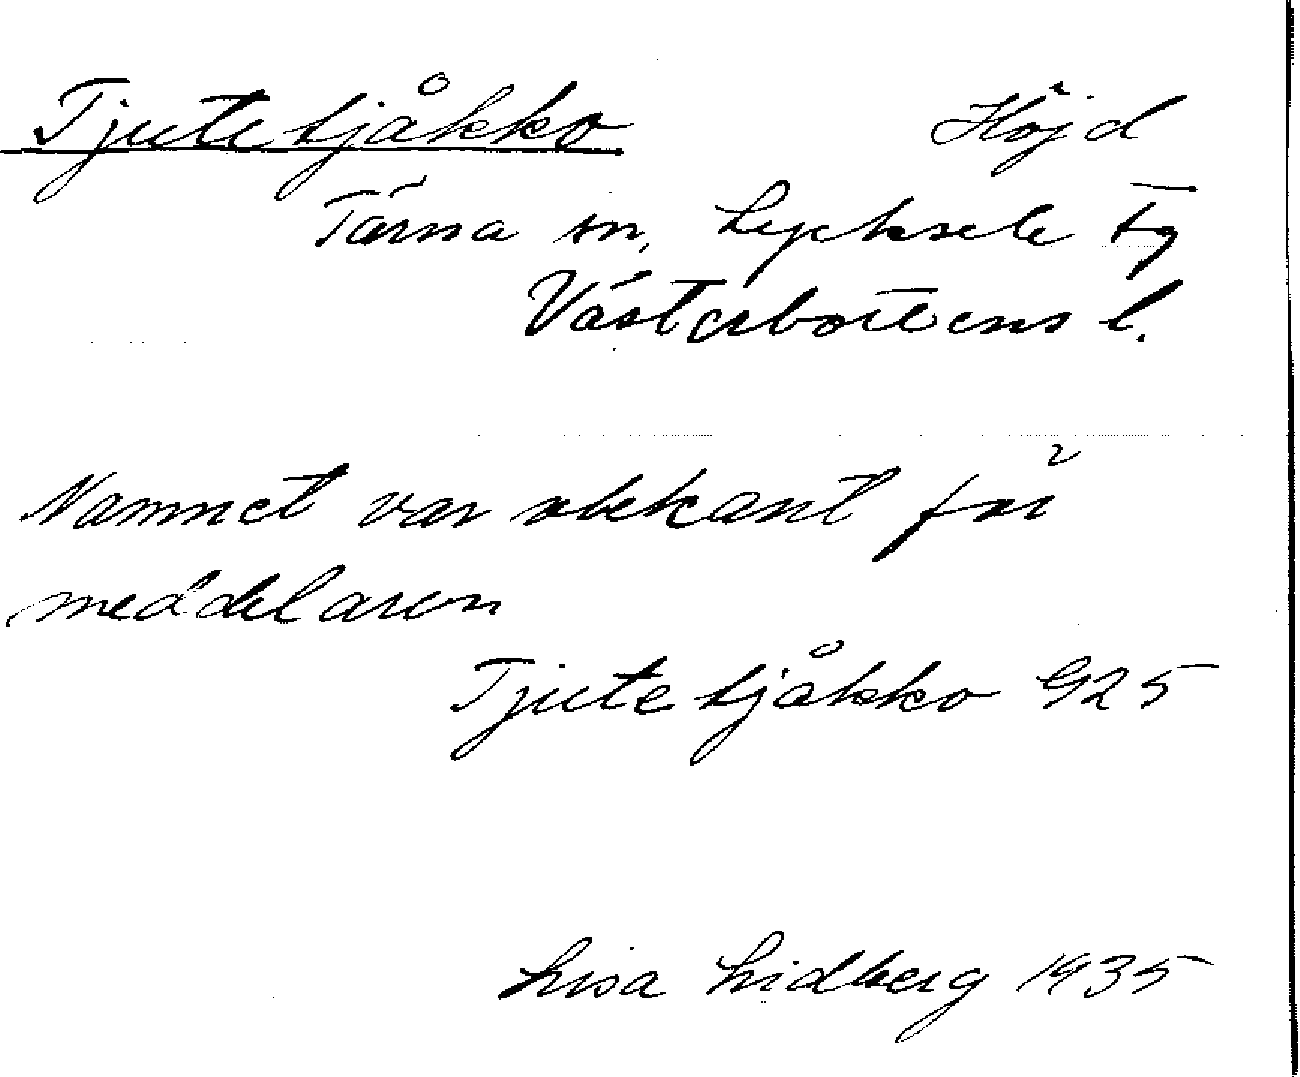 Tjutetjåkko Höjd
Tärna sn, Lycksele tg
Västerbottens l.
Namnet var obekant för
meddelaren
Tjutetjåkko 925
Lisa Lidberg 1935